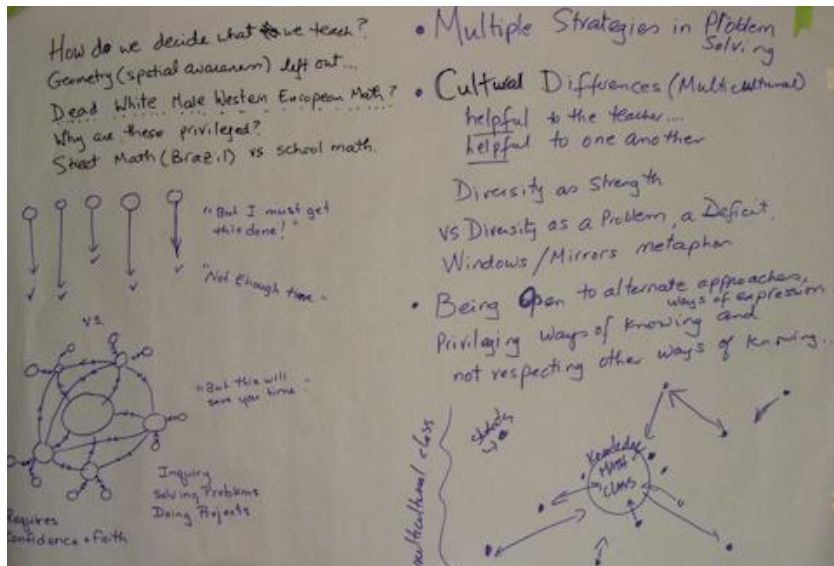 How do we decide what we teach?
Geometry (spatial awareness) left out...
Dead White Male Western European Math?
Why are these privileged?
Street Math (Brazil) vs school math.
"But I must get
this done!"
"Not Enough time"
vs.
"But this will
save you time"
Inquiry
Solving Problems
Doing Projects
Requires
Confidence + Faith
• Multiple Strategies in Problem
Solving
• Cultural Differences (Multicultural)
helpful to the teacher....
helpful to one another
Diversity as Strength
vs Diversity as a Problem, a Deficit.
Windows/Mirrors metaphor
• Being Open to alternate approaches,
ways of expression
Privileging ways of knowing and
not respecting other ways of knowing...
multicultural class
Students
Knowledge
MATH
CLASS